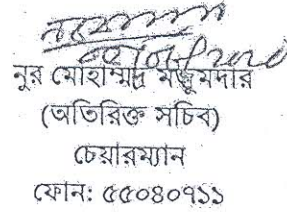 নুর মোহাম্মদ মজুমদার
(অতিরিক্ত সচিব)
চেয়ারম্যান
ফোন: ৫৫০৪০৭১১